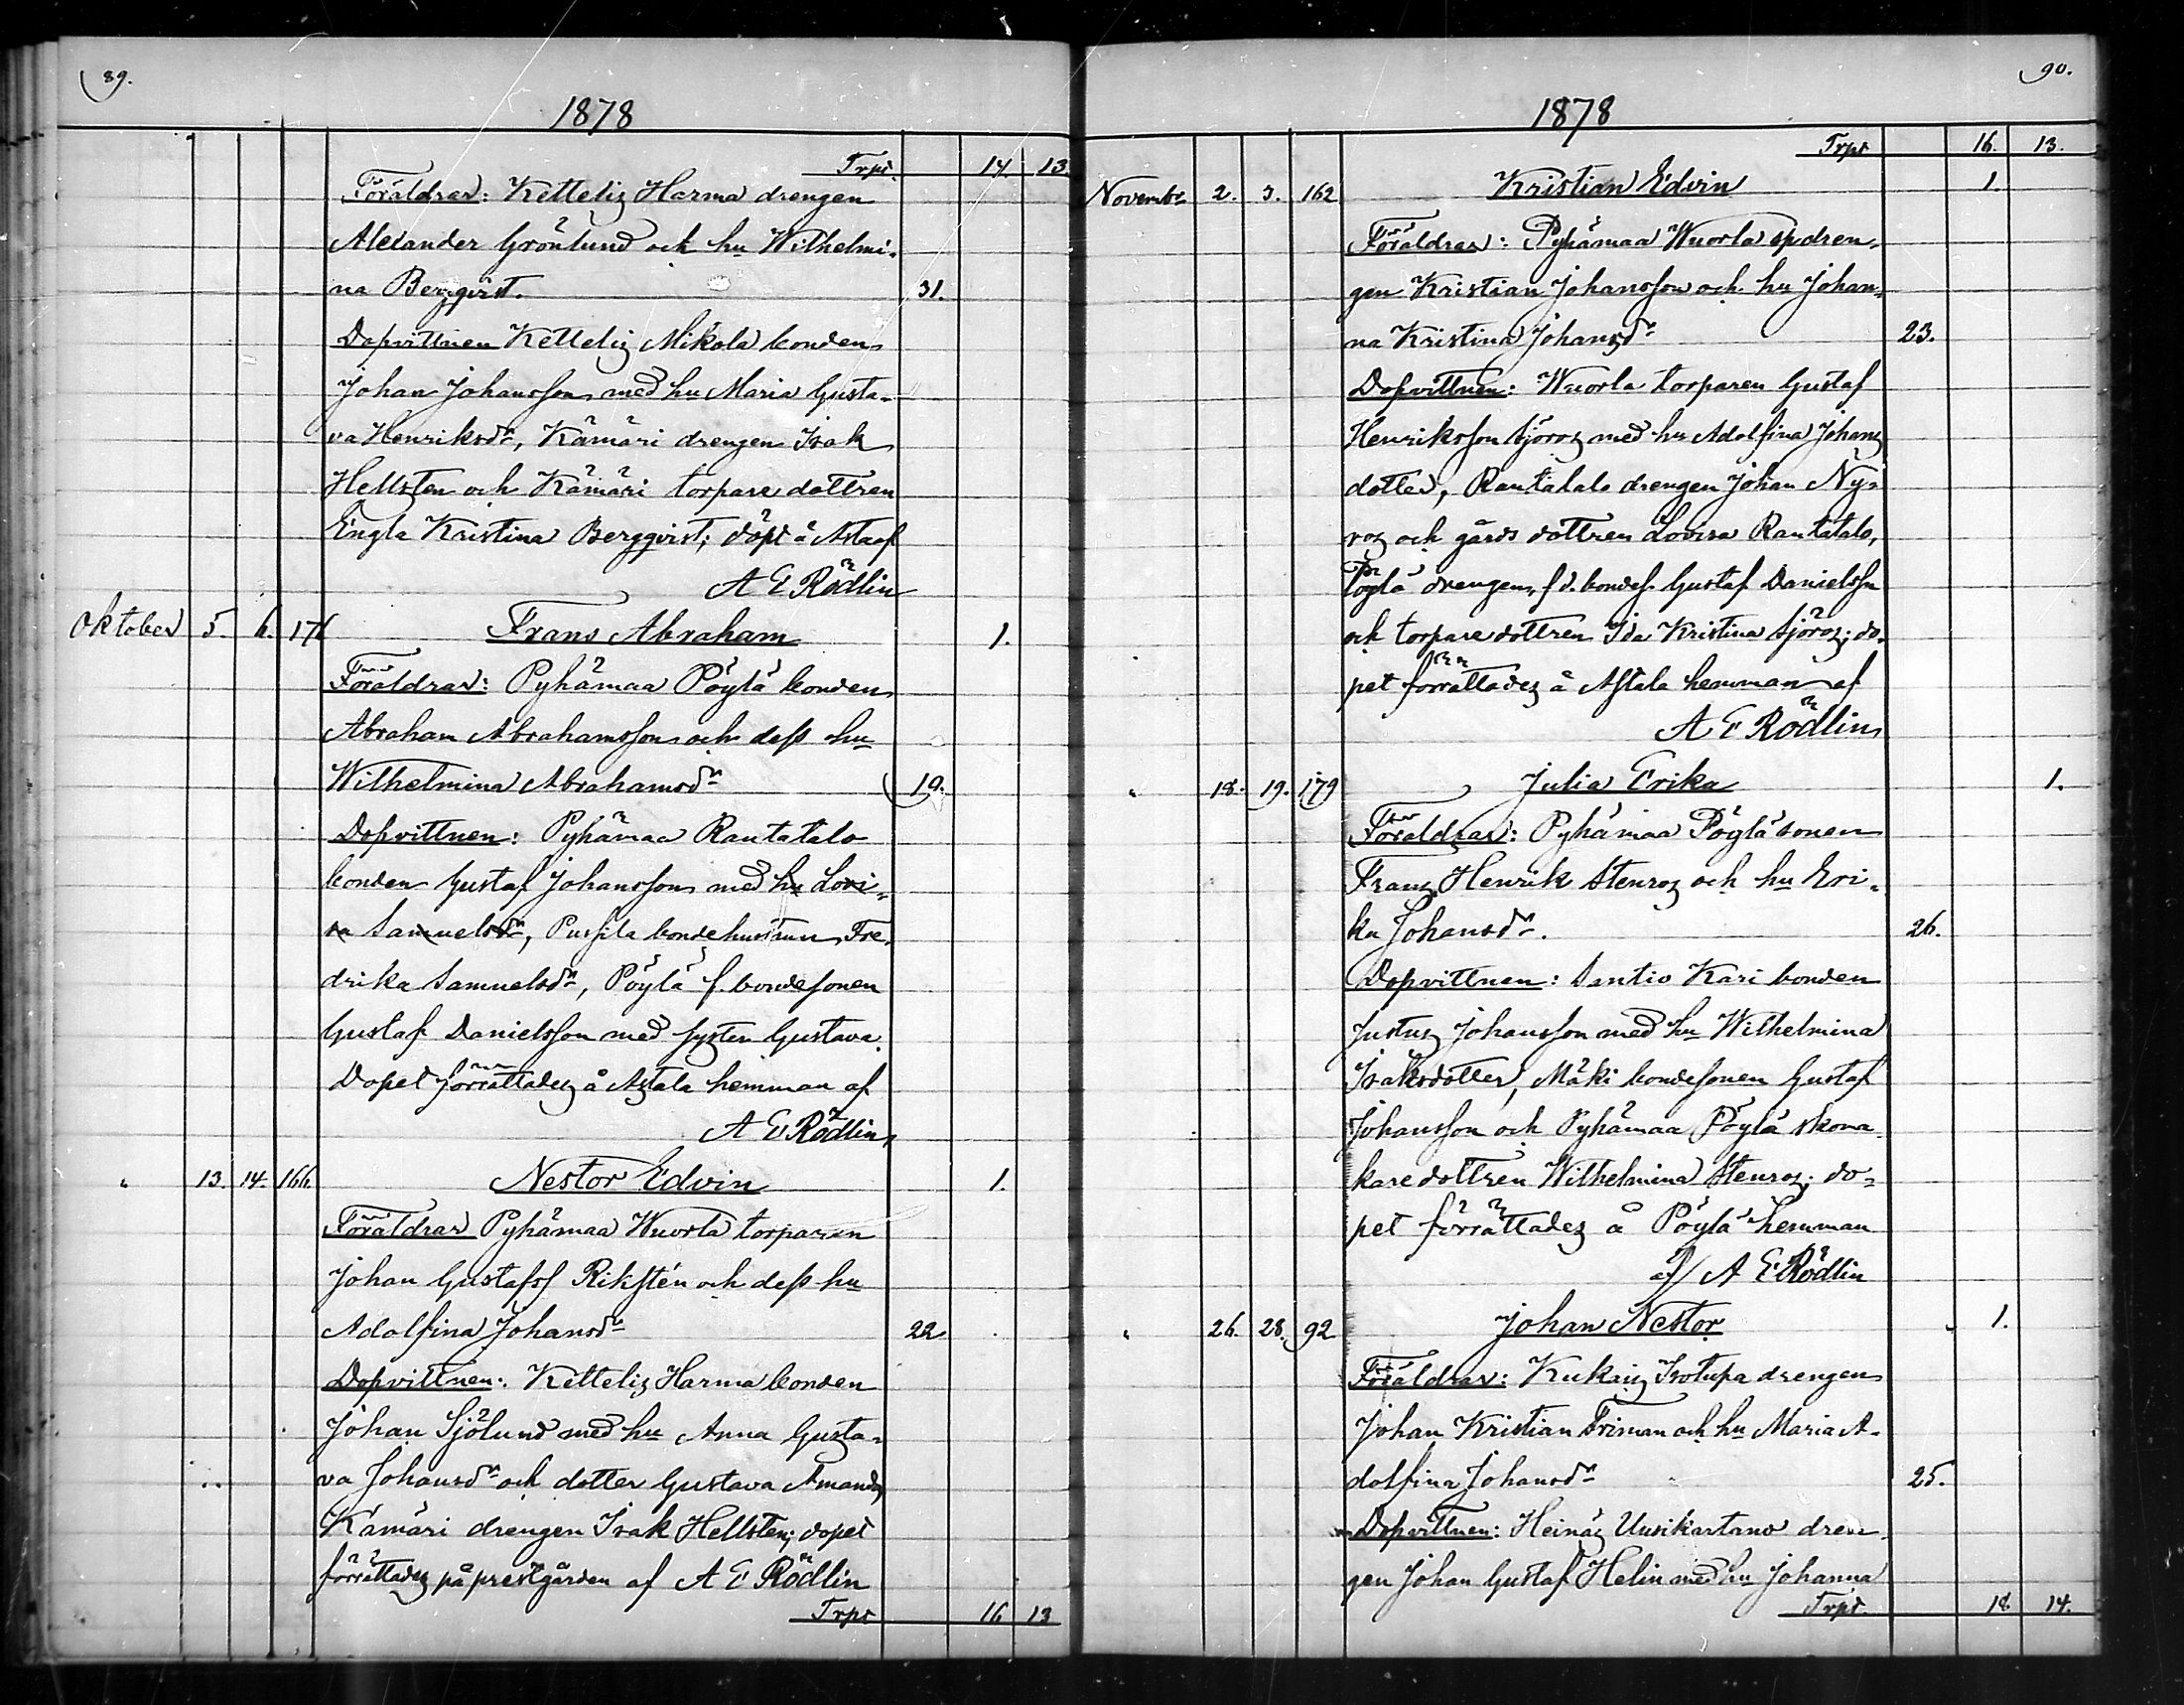 89.
1878
Trpt. 14. 13.
Föräldrar: Kettelis Harma drengen
Alexander Grönlund och hu Wilhelmi-
na Bergqvist. 31.
Dopvittnen Kettelis Mikola bonden
Johan Johansson med hu Maria Gusta-
va Henriksdr, Kämäri drengen Isak
Hellsten och Kämäri torpare dottren
Engla Kristina Bergqvist; döpt å af
A E Rödlin
Oktober 5. 6. 171 Frans Abraham 1.
Föräldrar: Pyhämaa Pöylä bonden
Abraham Abrahamsson och dess hu
Wilhelmina Abrahamsdr 19.
Dopvittnen: Pyhämaa Rautatalo
bonden Gustaf Johansson med hu Lovi-
sa Samuelsdr, Pussila bondehustrun Fre-
drika Samuelsdr, Pöylä f. bondesonen
Gustaf Danielsson med syster Gustava.
Dopet förrättades å Astala hemman af
A E Rödlin
" 13. 14. 166. Nestor Edvin 1.
Föräldrar Pyhämaa Wuorla torparen
Johan Gustafss Rikstén och dess hu
Adolfina Johansdr 22.
Dopvittnen: Kettelis Harma bonden
Johan Sjölund med hu Anna Gusta-
va Johansdr och dotter Gustava Amanda,
Kämäri drengen Isak Hellsten; dopet
förrättades på prestgården af A E Rödlin
Trpt 16 13
90.
1878
Trpt 16. 13.
Novembr 2. 3. 162 Kristian Edvin 1.
Föräldrar: Pyhämaa Wuorla spdren-
gen Kristian Johansson och hu Johan-
na Kristina Johansdr 23.
Dopvittnen: Wuorla torparen Gustaf
Henriksson Sjöros med hu Adolfina Johans
dotter, Rautatalo drengen Johan Ny-
ros och gårds dottren Lovisa Rautatalo,
Pöylä drengen, f d. bondes. Gustaf Danielssn
och torpare dottren Ida Kristina Sjöros; do-
pet förrättades å Astala hemman af
A E Rödlin
" 18. 19. 179 Julia Erika 1.
Föräldrar: Pyhämaa Pöylä sonen
Frans Henrik Stenros och hu Eri-
ka Johansdr. 26.
Dopvittnen: Santio Kari bonden
Justus Johansson med hu Wilhelmina
Isaksdotter, Mäki bondesonen Gustaf
Johansson och Pyhämaa Pöylä skoma-
karedottren Wilhelmina Stenros; do-
pet förrättades å Pöylä hemman
af A E Rödlin
" 26. 28. 92 Johan Nestor 1.
Föräldrar: Kukais Isotupa drengen
Johan Kristian Friman och hu Maria A-
dolfina Johansdr 25.
Dopvittnen: Heinäs Uusikartano dren-
gen Johan Gustaf Helin med hu Johanna
Trpt. 18 14.